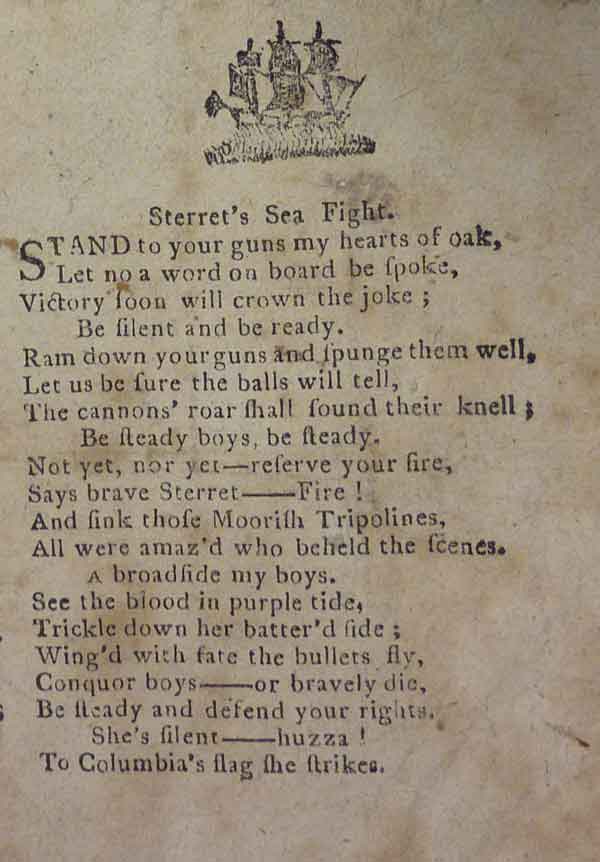 Sterret's Sea Fight.
STAND to your guns my hearts of oak,
Let no a word on board be ſpoke,
Victory ſoon will crown the joke ;
Be ſilent and be ready.
Ram down your guns and ſpunge them well,
Let us be ſure the balls will tell,
The cannons' roar ſhall ſound their knell ;
Be ſteady boys, be ſteady.
Not yet, nor yet——reſerve your fire,
Says brave Sterret——Fire !
And ſink thoſe Mooriſh Tripolines,
All were amaz'd who beheld the ſcenes.
A broadſide my boys.
See the blood in purple tide,
Trickle down her batter'd ſide ;
Wing'd with fate the bullets fly,
Conquor boys——or bravely die,
Be ſteady and defend your rights.
She's ſilent——huzza !
To Columbia's flag ſhe ſtrikes.